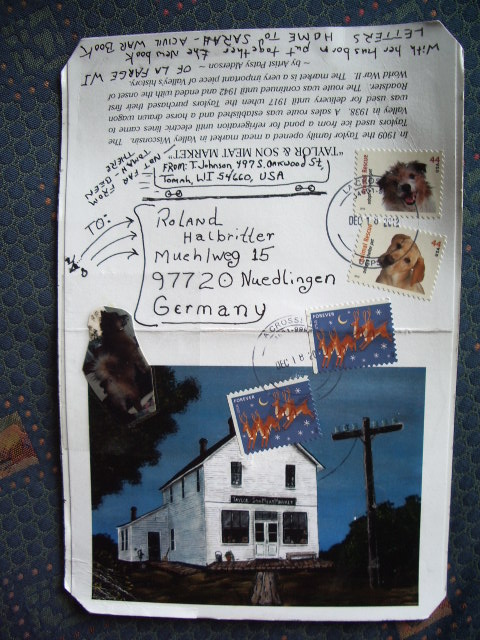 LETTERS HOME TO SARAH - A CIVIL WAR BOOK
with her husban put together the new book
OF LA FARGE WI
~ by Artist Patsy Alderson ~
World War II. The market is a very important piece of Valley's history.
Roadster. The route was continued until 1942 and ended with the onset of
Valley in 1938. A sales route was established and a horse drawn wagon
was used for delivery until 1917 when the Taylors purchased their first
Taylors used ice from a pond for refrigeration until electric lines came to
In 1909 the Taylor family opened a meat market in Valley Wisconsin. The
"TAYLOR & SON MEAT MARKET"
NOT FAR FROM
TOMAH
FROM: T. Johnson, 497 S. Oakwood St,
Tomah, WI 54660, USA
TO:
Roland
Halbritter
Muehlweg 15
97720 Nuedlingen
Germany
44
44
DEC 18 2012
LA CROSSE
DEC 18 2
FOREVER
FOREVER